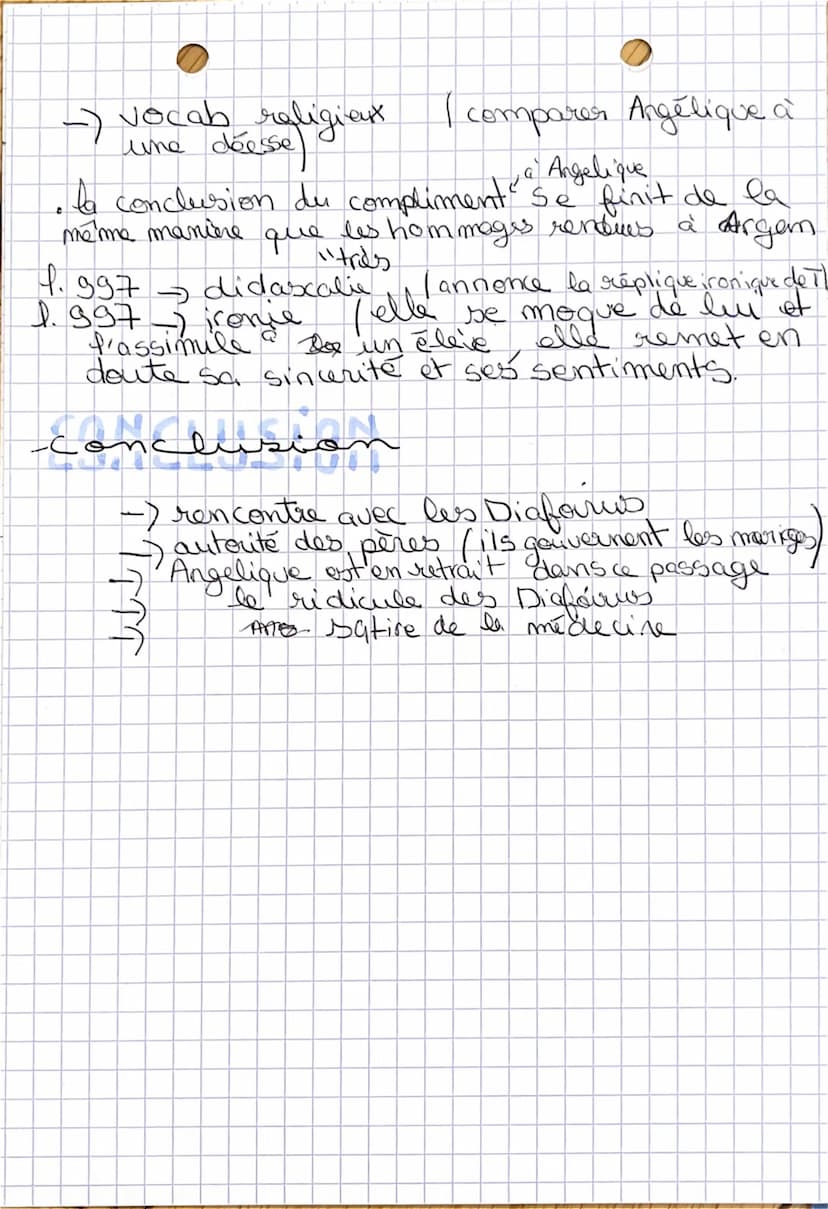 → vocab religieux (comparer Angélique à
une déesse)
à Angelique
. la conclusion du compliment se finit de la
même manière que les hommages rendues à Argan
"très
l. 997 → didascalie (annonce la réplique ironique de T)
l. 997 → ironie (elle se moque de lui et
l'assimile à un élève, elle remet en
doute sa sincérité et ses sentiments.
CONCLUSION
- Conclusion
→ rencontre avec les Diafoirus
→ autorité des pères (ils gouvernent les mariges)
→ Angélique est en retrait dans ce passage
→ le ridicule des Diafoirus
→ satire de la médecine